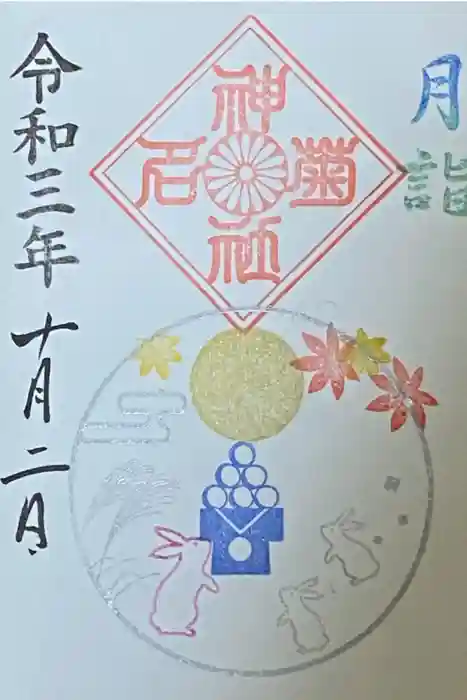 月詣
菊名神社
令和三年 十月二日